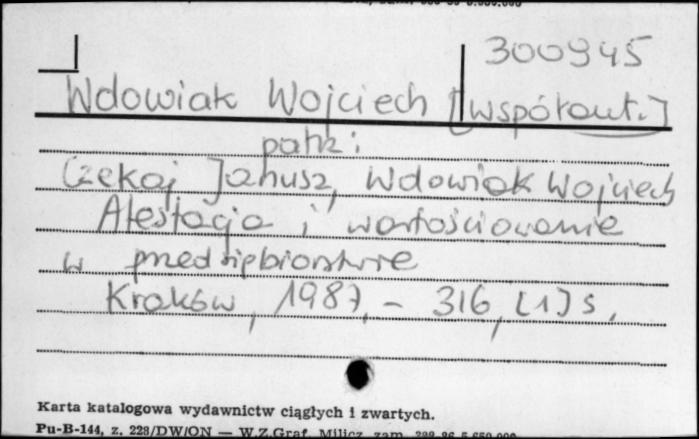 300945
Wdowiak Wojciech [współaut.]
patrz:
Czekaj Janusz, Wdowiak Wojciech
Atestacja i wartościowanie
w przedsiębiorstwie
Kraków, 1987, - 316, [1] s.
Karta katalogowa wydawnictw ciągłych i zwartych.
Pu-B-144, z. 228/DW/ON — W.Z.Graf. Milicz, zam.